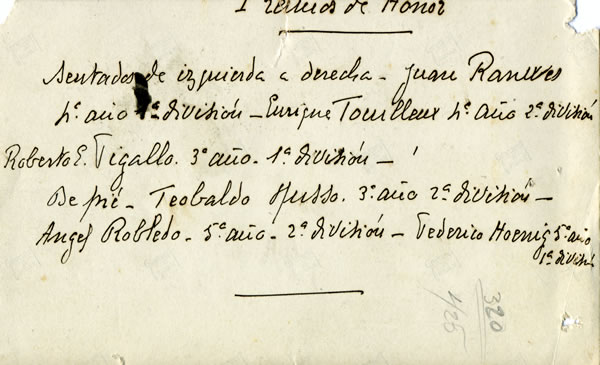 Premios de Honor
Sentados de izquierda a derecha - Juan
4º año 1ª división - Enrique Tourilleux 4º Año 2ª división
Roberto E. Figallo. 3º año. 1ª división -
De pié - Teobaldo Russo. 3º año 2ª división -
Angel Robledo. - 5º año. - 2ª división - Federico Hoenig 5º año
1ª divisi
320
4/25